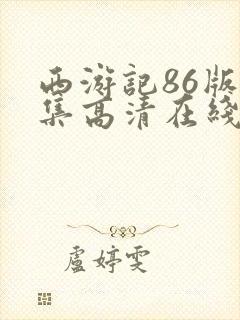 西游記86版
集高清在綫
盧婷雯